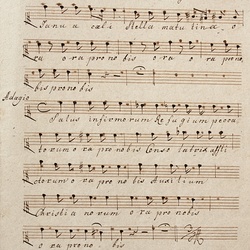 Janua cæli Stella matutina, o
ra o-ra pro nobis o-ra o-ra prono
bis pro nobis
Adagio
Salus infirmorum Refugium pecca
torum o-ra pro nobis Conso latrix affli
ctorum o-ra pro nobis Auxilium
Christia norum o-ra pro nobis
o-ra pro no-bis